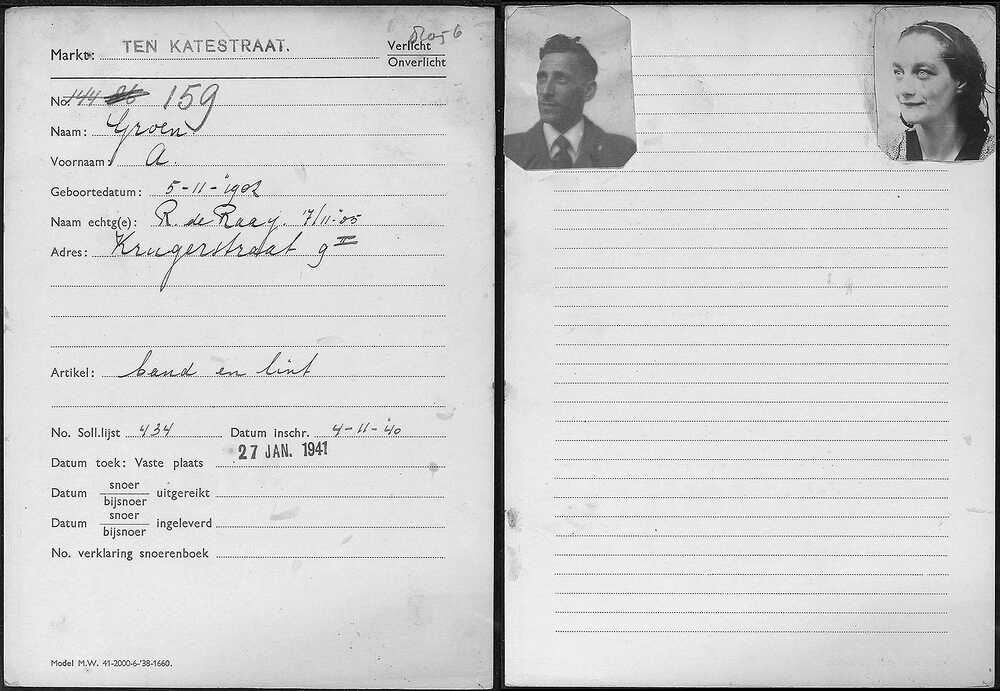 Markt: TEN KATESTRAAT.
Verlicht
Onverlicht
No. 144 26 159
Naam: Groen
Voornaam: A.
Geboortedatum: 5-11-'902
Naam echtg(e): R. de Raay. 17/11-'05
Adres: Krugerstraat 9 II
Artikel: band en lint
No. Soll.lijst 434 Datum inschr. 4-11-'40
27 JAN. 1941
Datum toek: Vaste plaats
Datum snoer/bijsnoer uitgereikt
Datum snoer/bijsnoer ingeleverd
No. verklaring snoerenboek
Model M.W. 41-2000-6-'38-1660.